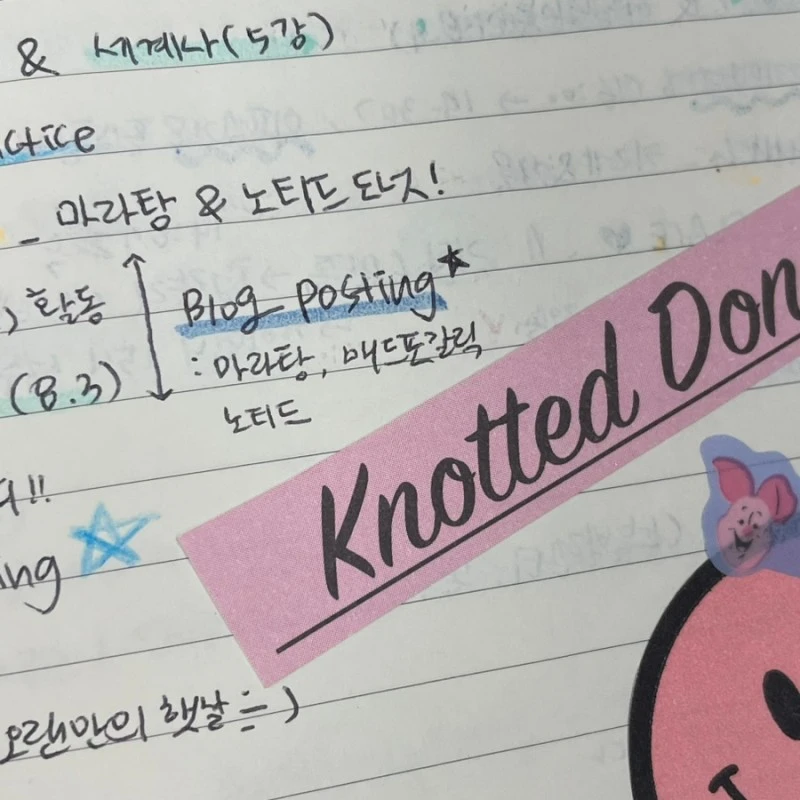 & 세계사(5강)
actice
_ 마라탕 & 노티드 도넛!
) 활동
Blog posting
: 마라탕, 매드포갈릭
(8.3)
노티드
Knotted Don
!!
ing
오랜만의 햇날 = )